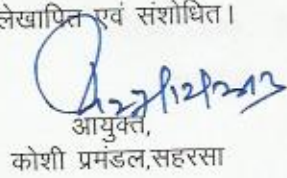 लेखापित एवं संशोधित।
27/12/2013
आयुक्त,
कोशी प्रमंडल,सहरसा